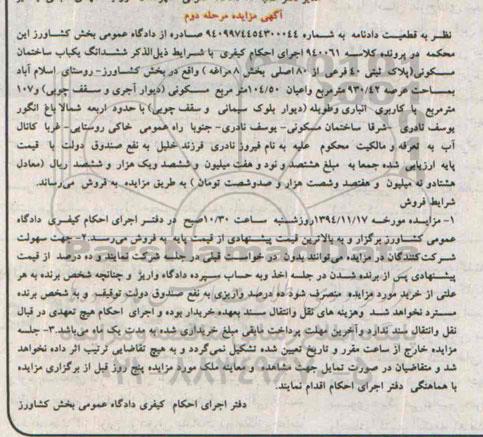 آگهی مزایده مرحله دوم
نظر به قطعیت دادنامه به شماره ۹۴۰۹۹۷۴۴۵۴۳۰۰۰۴۴ صادره از دادگاه عمومی بخش کشاورز این
محکمه در پرونده کلاسه ۹۴۰۰۶۱ اجرای احکام کیفری با شرایط ذیل‌الذکر ششدانگ یکباب ساختمان
مسکونی(پلاک ثبتی ۴۰ فرعی از ۸۰ اصلی بخش ۸ مراغه ) واقع در بخش کشاورز- روستای اسلام آباد
بمساحت عرصه ۹۳۰/۴۲ مترمربع واعیان ۱۰۴/۵۰ متر مربع مسکونی (دیوار آجری و سقف چوبی) و۱۰۷
مترمربع با کاربری انباری وطویله (دیوار بلوک سیمانی و سقف چوبی) با حدود اربعه شمالا باغ انگور
یوسف نادری -شرقا ساختمان مسکونی- یوسف نادری- جنوبا راه عمومی خاکی روستایی- غربا کانال
آب به تعرفه و مالکیت محکوم علیه به نام فیروز نادری فرزند خلیل به نفع صندوق دولت با قیمت
پایه ارزیابی شده جمعا به مبلغ هشتصد و نود و هفت میلیون و ششصد ویک هزار و ششصد ریال (معادل
هشتادو نه میلیون و هفتصد وشصت هزار و صدوشصت تومان ) به طریق مزایده به فروش می‌رساند.
شرایط فروش
۱- مزایده مورخه ۱۳۹۴/۱۱/۱۷روزشنبه ساعت ۱۰/۳۰صبح در دفتر اجرای احکام کیفری دادگاه
عمومی کشاورز برگزار و به بالاترین قیمت پیشنهادی از قیمت پایه به فروش می‌رسد.۲- جهت سهولت
شرکت‌کنندگان در مزایده می‌توانند بدون در خواست قبلی در جلسه شرکت نمایند و ده درصد از قیمت
پیشنهادی پس از برنده شدن در جلسه اخذ وبه حساب سپرده دادگاه واریز و چنانچه شخص برنده به هر
علتی از خرید مورد مزایده منصرف شود ده درصد واریزی به نفع صندوق دولت توقیف و به شخص برنده
مسترد نخواهد شد وهزینه های نقل وانتقال سند بعهده خریدار بوده و اجرای احکام هیچ تعهدی در قبال
نقل وانتقال سند ندارد وآخرین مهلت پرداخت مابقی مبلغ خریداری شده به مدت یک ماه می‌باشد.۳- جلسه
مزایده خارج از ساعت مقرر و تاریخ تعیین شده تشکیل نمی‌گردد و به هیچ تقاضایی ترتیب اثر داده نخواهد
شد و متقاضیان در صورت تمایل جهت مشاهده و معاینه ملک مورد مزایده پنج روز قبل از برگزاری مزایده
با هماهنگی دفتر اجرای احکام اقدام نمایند.
دفتر اجرای احکام کیفری دادگاه عمومی بخش کشاورز